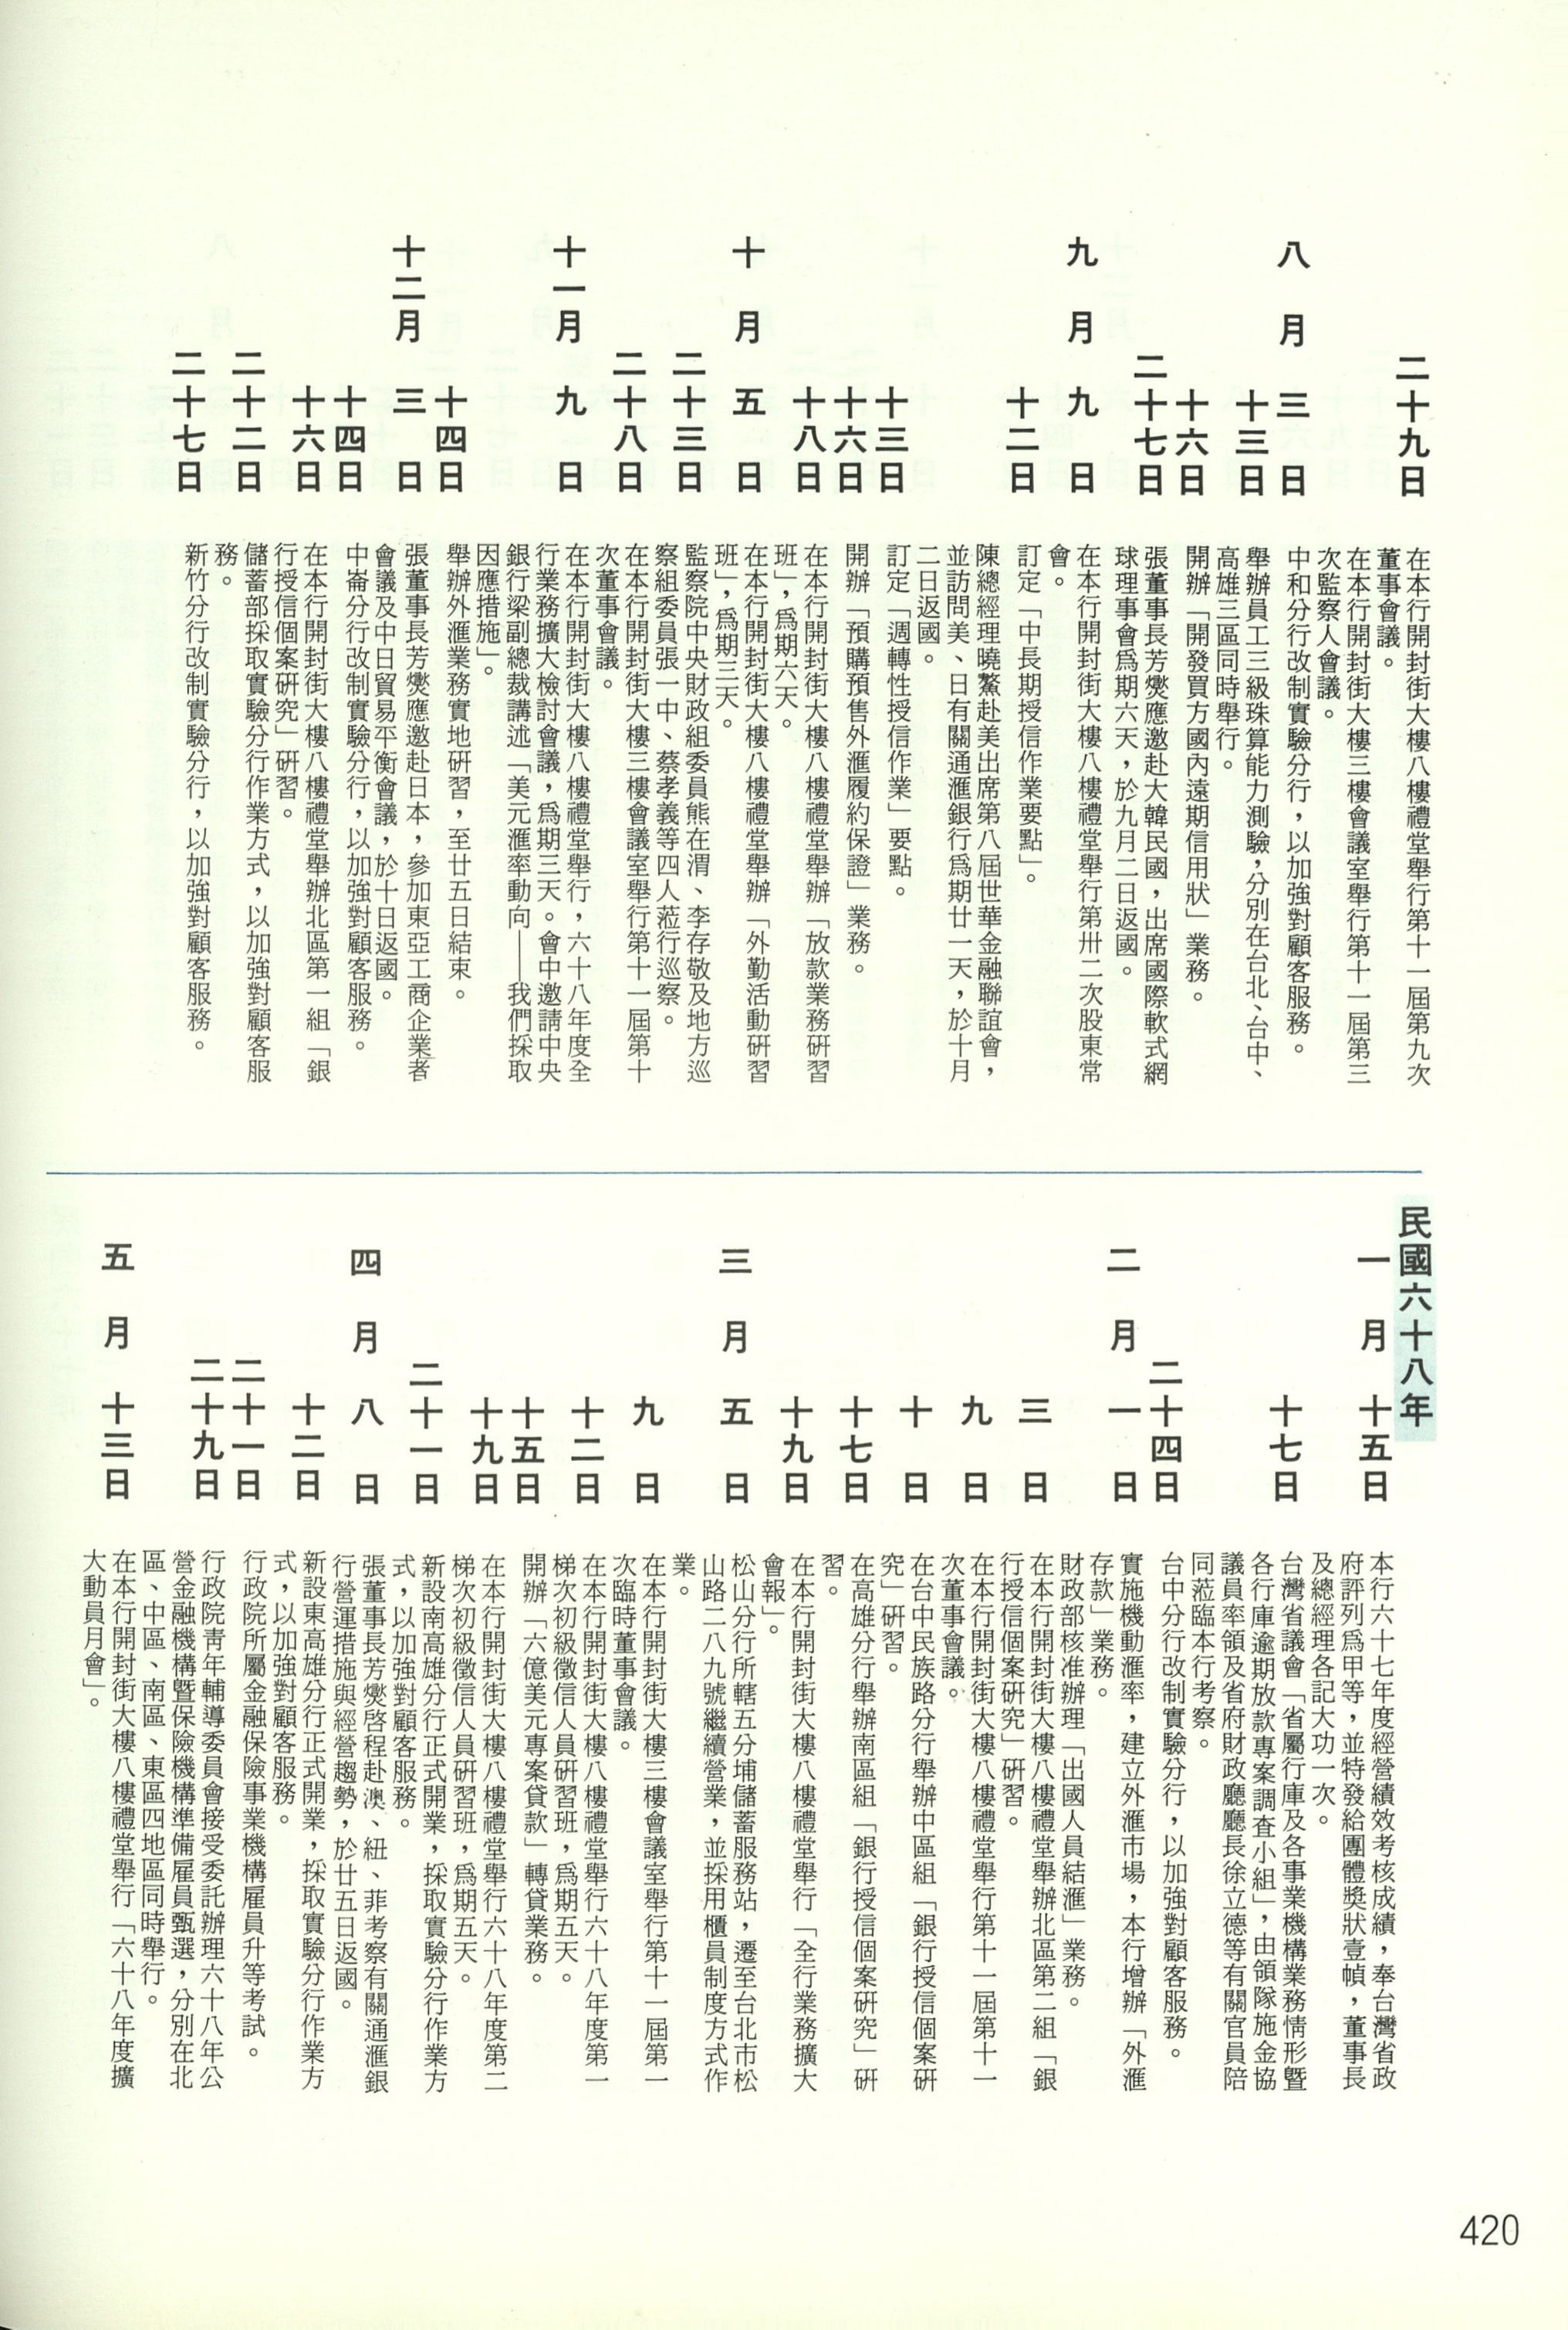 二十九日 在本行開封街大樓八樓禮堂舉行第十一屆第九次
董事會議。
在本行開封街大樓三樓會議室舉行第十一屆第三
次監察人會議。
八月 三日 中和分行改制實驗分行，以加強對顧客服務。
十三日 舉辦員工三級珠算能力測驗，分別在台北、台中、
高雄三區同時舉行。
十六日 開辦「開發買方國內遠期信用狀」業務。
二十七日 張董事長芳燮應邀赴大韓民國，出席國際軟式網
球理事會爲期六天，於九月二日返國。
九月 九日 在本行開封街大樓八樓禮堂舉行第卅二次股東常
會。
十二日 訂定「中長期授信作業要點」。
陳總經理曉鰲赴美出席第八屆世華金融聯誼會，
並訪問美、日有關通滙銀行爲期廿一天，於十月
二日返國。
十三日 訂定「週轉性授信作業」要點。
十六日 開辦「預購預售外滙履約保證」業務。
十八日 在本行開封街大樓八樓禮堂舉辦「放款業務研習
班」，爲期六天。
十月 五日 在本行開封街大樓八樓禮堂舉辦「外勤活動研習
班」，爲期三天。
二十三日 監察院中央財政組委員熊在渭、李存敬及地方巡
察組委員張一中、蔡孝義等四人蒞行巡察。
二十八日 在本行開封街大樓三樓會議室舉行第十一屆第十
次董事會議。
十一月 九日 在本行開封街大樓八樓禮堂舉行，六十八年度全
行業務擴大檢討會議，爲期三天。會中邀請中央
銀行梁副總裁講述「美元滙率動向——我們採取
因應措施」。
十四日 舉辦外滙業務實地研習，至廿五日結束。
十二月 三日 張董事長芳燮應邀赴日本，參加東亞工商企業者
會議及中日貿易平衡會議，於十日返國。
十四日 中崙分行改制實驗分行，以加強對顧客服務。
十六日 在本行開封街大樓八樓禮堂舉辦北區第一組「銀
行授信個案研究」研習。
二十二日 儲蓄部採取實驗分行作業方式，以加強對顧客服
務。
二十七日 新竹分行改制實驗分行，以加強對顧客服務。
民國六十八年
一月 十五日 本行六十七年度經營績效考核成績，奉台灣省政
府評列爲甲等，並特發給團體獎狀壹幀，董事長
及總經理各記大功一次。
十七日 台灣省議會「省屬行庫及各事業機構業務情形暨
各行庫逾期放款專案調查小組」，由領隊施金協
議員率領及省府財政廳廳長徐立德等有關官員陪
同蒞臨本行考察。
二十四日 台中分行改制實驗分行，以加強對顧客服務。
二月 一日 實施機動滙率，建立外滙市場，本行增辦「外滙
存款」業務。
財政部核准辦理「出國人員結滙」業務。
三日 在本行開封街大樓八樓禮堂舉辦北區第二組「銀
行授信個案研究」研習。
九日 在本行開封街大樓八樓禮堂舉行第十一屆第十一
次董事會議。
十日 在台中民族路分行舉辦中區組「銀行授信個案研
究」研習。
十七日 在高雄分行舉辦南區組「銀行授信個案研究」研
習。
十九日 在本行開封街大樓八樓禮堂舉行「全行業務擴大
會報」。
三月 五日 松山分行所轄五分埔儲蓄服務站，遷至台北市松
山路二八九號繼續營業，並採用櫃員制度方式作
業。
九日 在本行開封街大樓三樓會議室舉行第十一屆第一
次臨時董事會議。
十二日 在本行開封街大樓八樓禮堂舉行六十八年度第一
梯次初級徵信人員研習班，爲期五天。
十五日 開辦「六億美元專案貸款」轉貸業務。
十九日 在本行開封街大樓八樓禮堂舉行六十八年度第二
梯次初級徵信人員研習班，爲期五天。
二十一日 新設南高雄分行正式開業，採取實驗分行作業方
式，以加強對顧客服務。
四月 八日 張董事長芳燮啓程赴澳、紐、菲考察有關通滙銀
行營運措施與經營趨勢，於廿五日返國。
十二日 新設東高雄分行正式開業，採取實驗分行作業方
式，以加強對顧客服務。
二十一日 行政院所屬金融保險事業機構雇員升等考試。
二十九日 行政院靑年輔導委員會接受委託辦理六十八年公
營金融機構暨保險機構準備雇員甄選，分別在北
區、中區、南區、東區四地區同時舉行。
五月 十三日 在本行開封街大樓八樓禮堂舉行「六十八年度擴
大動員月會」。
420